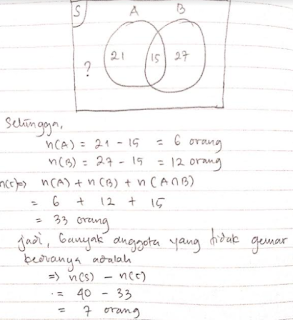 S A B
21 15 27
?
Sehingga,
n(A) = 21 - 15 = 6 orang
n(B) = 27 - 15 = 12 orang
n(c) => n(A) + n(B) + n(A∩B)
= 6 + 12 + 15
= 33 orang
Jadi, banyak anggota yang tidak gemar
keduanya adalah
=> n(S) - n(c)
= 40 - 33
= 7 orang